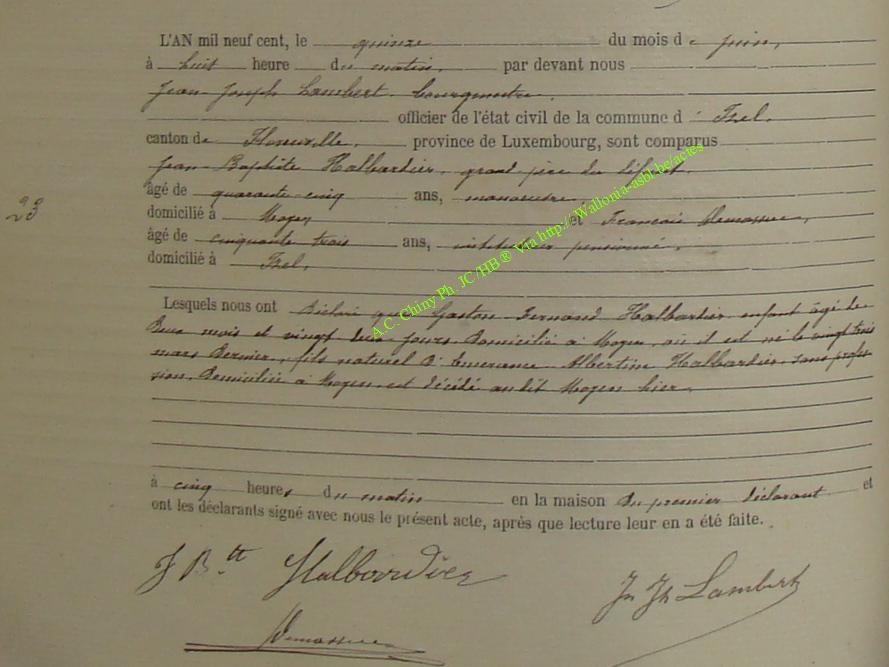 L'AN mil neuf cent, le quinze du mois de juin,
à huit heure du matin, par devant nous
Jean-Joseph Lambert, bourgmestre,
officier de l'état civil de la commune d'Izel,
canton de Florenville, province de Luxembourg, sont comparus
Jean-Baptiste Halbardier, grand père du défunt,
âgé de quarante-cinq ans, manoeuvre,
23
domicilié à Moyen et François Demasse
âgé de cinquante trois ans, instituteur pensionné,
domicilié à Izel,
Lesquels nous ont déclaré que Gaston Fernand Halbardier enfant âgé de
deux mois et vingt deux jours domicilié à Moyen, où il est né le vingt trois
mars dernier, fils naturel d'Emerance Albertine Halbardier, sans profes-
sion, domiciliée à Moyen, est décédé audit Moyen hier
à cinq heures du matin en la maison du premier déclarant et
ont les déclarants signé avec nous le présent acte, après que lecture leur en a été faite.
J Btte Halbardier
Jn Jh Lambert
A.C. Chiny Ph. JC /HB ® Via http://Wallonia-asbl.be/actes